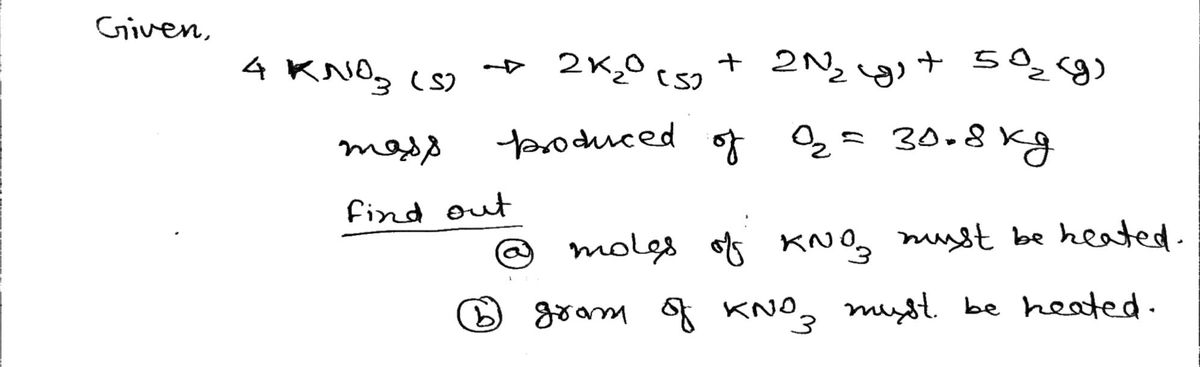 Given,
4 KNO₃ (s) → 2K₂O (s) + 2N₂ (g) + 5O₂ (g)
mass produced of O₂ = 30.8 kg
find out
ⓐ moles of KNO₃ must be heated.
ⓑ gram of KNO₃ must. be heated.